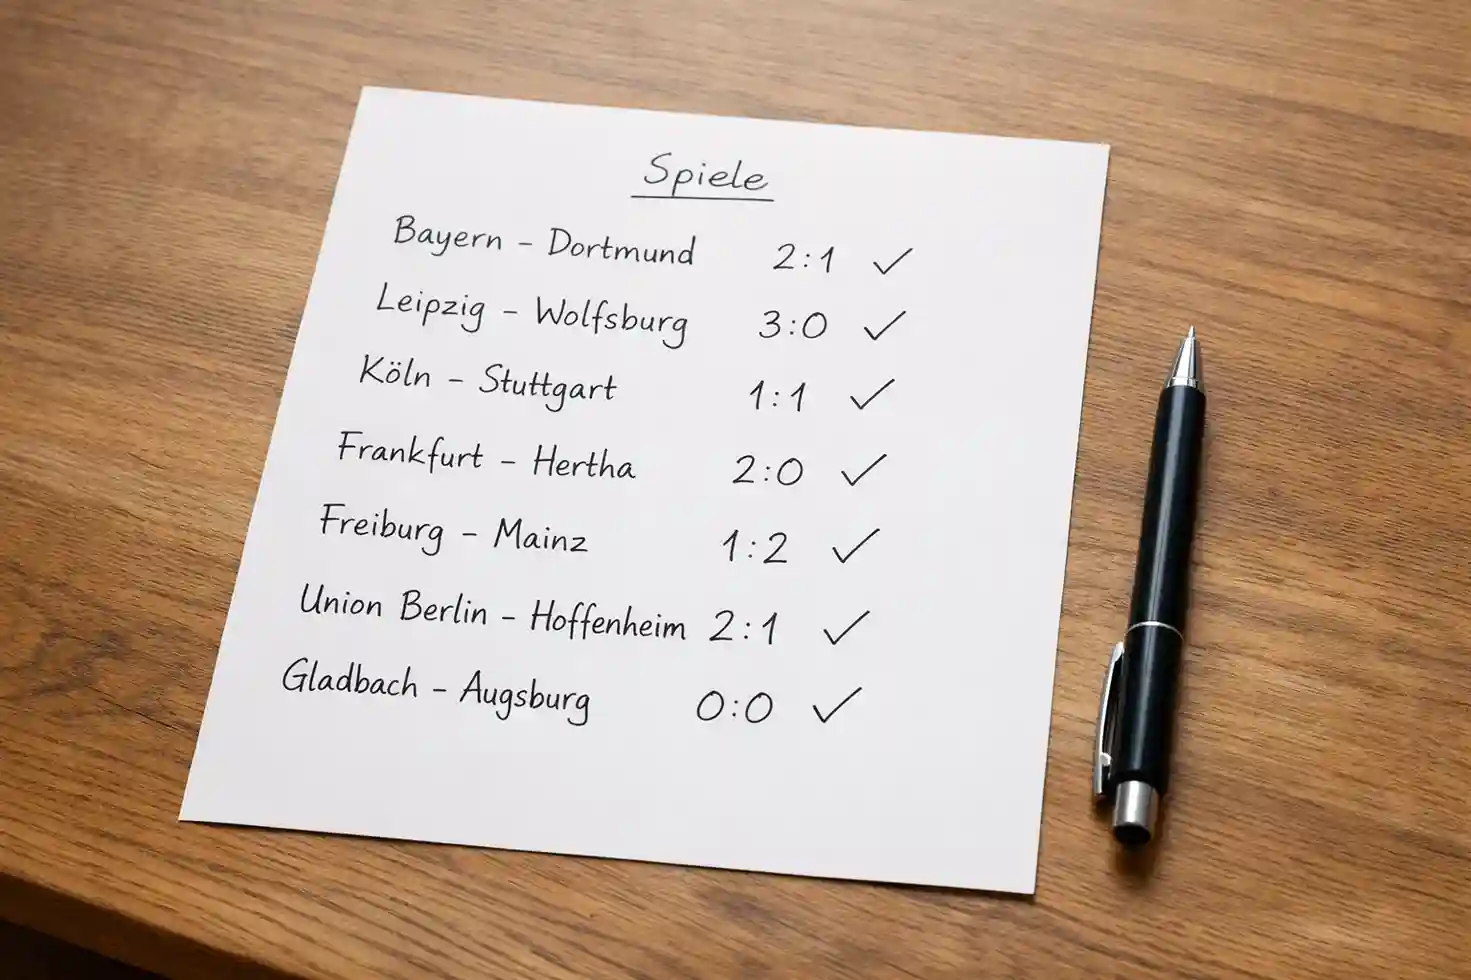 Spiele
Bayern - Dortmund 2:1 ✓
Leipzig - Wolfsburg 3:0 ✓
Köln - Stuttgart 1:1 ✓
Frankfurt - Hertha 2:0 ✓
Freiburg - Mainz 1:2 ✓
Union Berlin - Hoffenheim 2:1 ✓
Gladbach - Augsburg 0:0 ✓